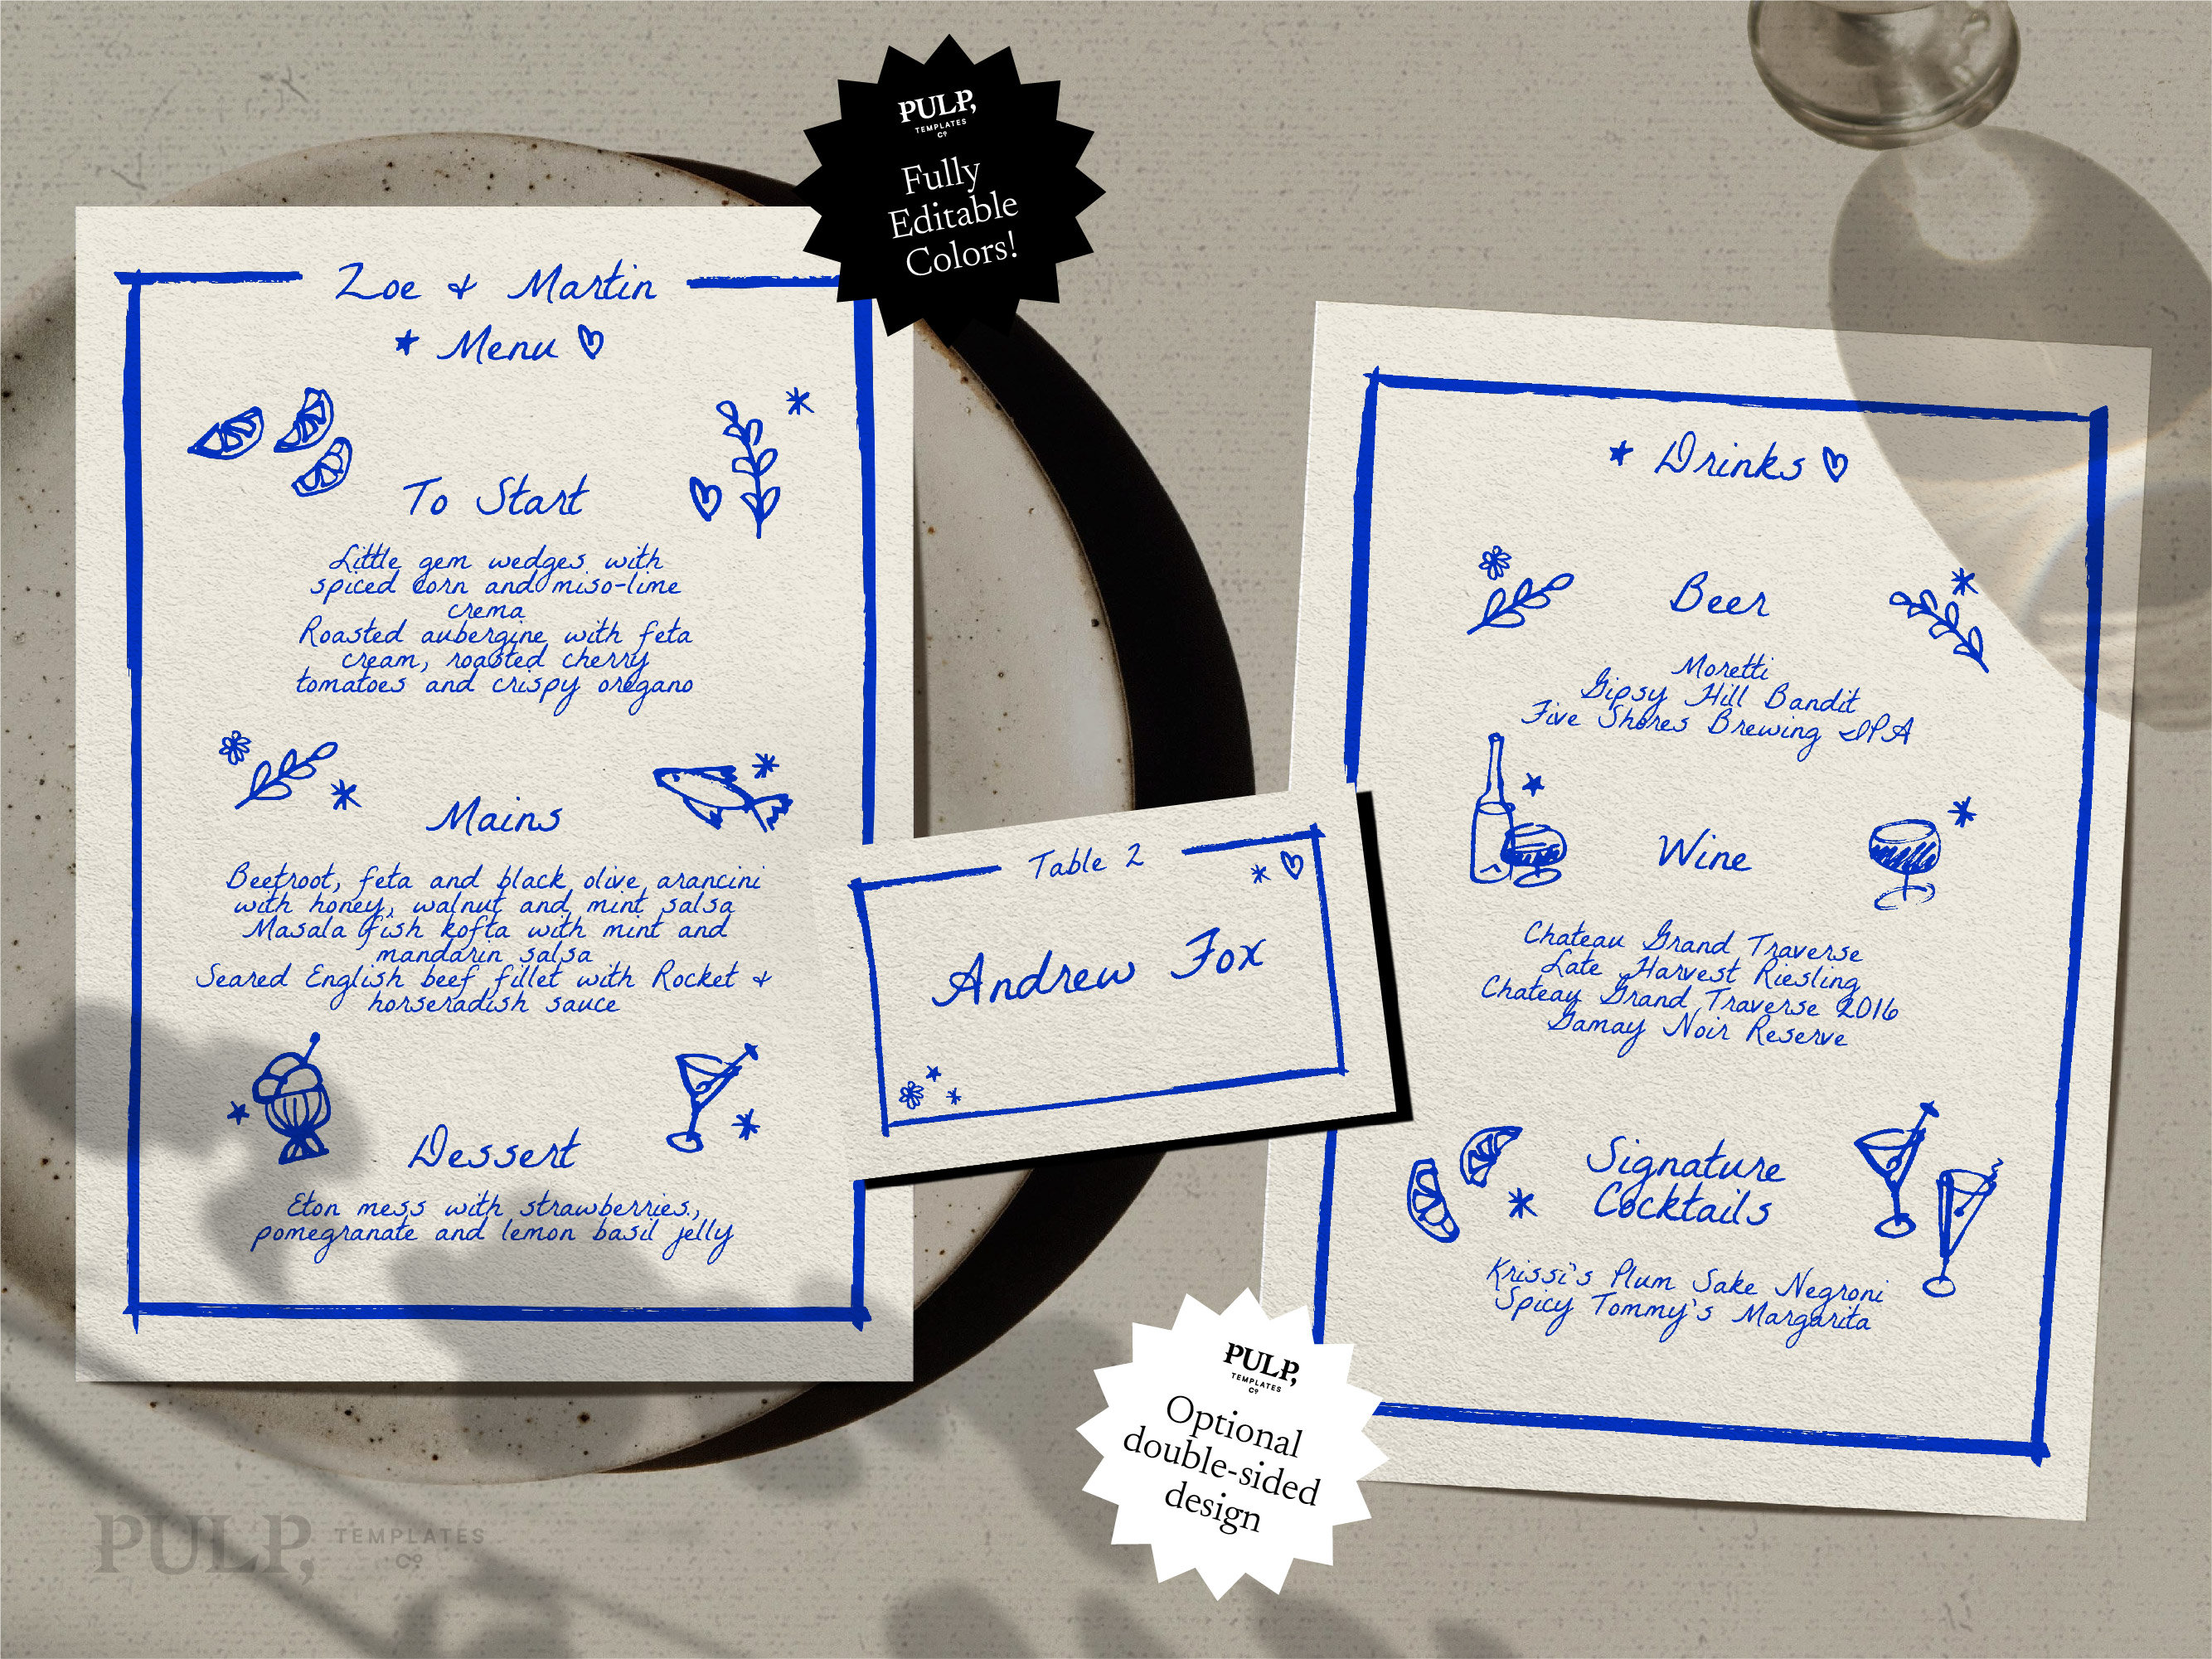 PULP,
TEMPLATES
Co
Fully
Editable
Colors!
Zoe & Martin
Menu
To Start
Little gem wedges with
spiced corn and miso-lime
crema
Roasted aubergine with feta
cream, roasted cherry
tomatoes and crispy oregano
Mains
Beetroot, feta and black olive arancini
with honey, walnut and mint salsa
Masala fish kofta with mint and
mandarin salsa
Seared English beef fillet with Rocket &
horseradish sauce
Dessert
Eton mess with strawberries,
pomegranate and lemon basil jelly
Table 2
Andrew Fox
Drinks
Beer
Moretti
Gipsy Hill Bandit
Five Shores Brewing IPA
Wine
Chateau Grand Traverse
Late Harvest Riesling
Chateay Grand Traverse 2016
Gamay Noir Reserve
Signature
Cocktails
Krissi's Plum Sake Negroni
Spicy Tommy's Margarita
PULP,
TEMPLATES
Co
Optional
double-sided
design
PULP,
TEMPLATES
Co